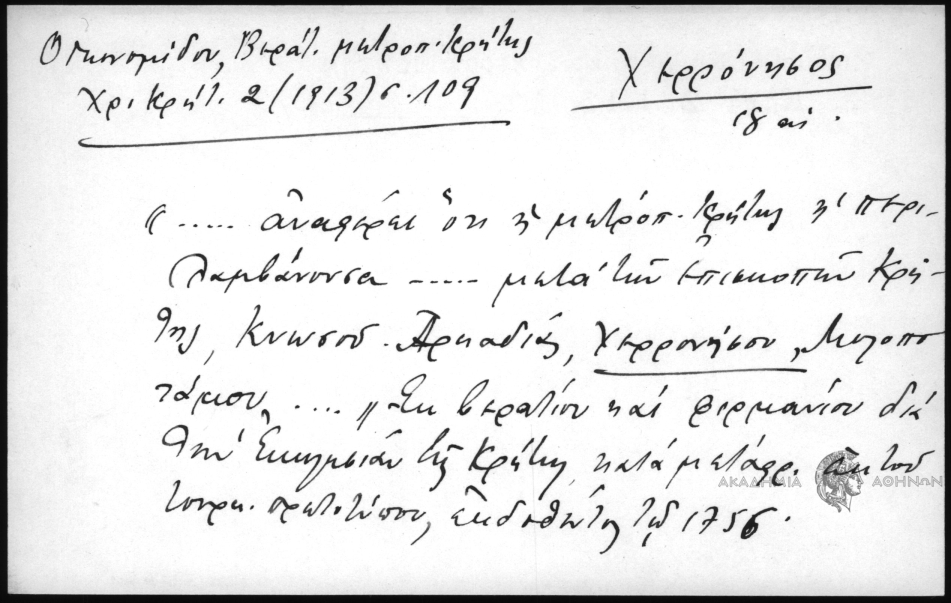 Οικονομίδου, Βεράτ. μητροπ. Κρήτης
Χρ. Κρήτ. 2 (1913) σ. 109
Χερρόνησος
18 αι.
"..... ἀναφέρει ὅτι ἡ μητρόπ. Κρήτης ἡ περι-
λαμβάνουσα ..... μετά τῶν ἐπισκοπῶν Κρή-
της, Κνωσοῦ. Ἀρκαδίας, Χερρονήσου, Μυλοπο
τάμου, .... " Ἐκ βερατίου καί φιρμανίου διά
τήν Ἐκκλησίαν τῆς Κρήτης, κατά μετάφρ. ἐκ τοῦ
τουρκ. πρωτοτύπου, ἐκδοθέντος τῷ 1756.
ΑΚΑΔΗΜΙΑ ΑΘΗΝΩΝ